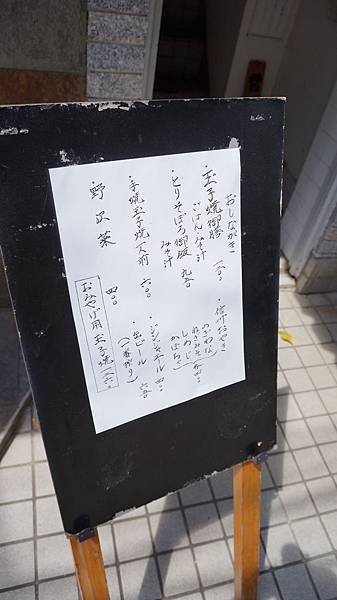 おしながき
・玉子焼御膳
ごはん みそ汁
・とりそぼろ御飯 九五〇
みそ汁
・手焼玉子焼一人前 六〇〇
・野沢菜 四〇〇
・信州おやき
のざわな
しめじ
かぼちゃ
・ジンジャエール 四〇〇
・生ビール 六五〇
（一番搾り）
おみやげ用玉子焼